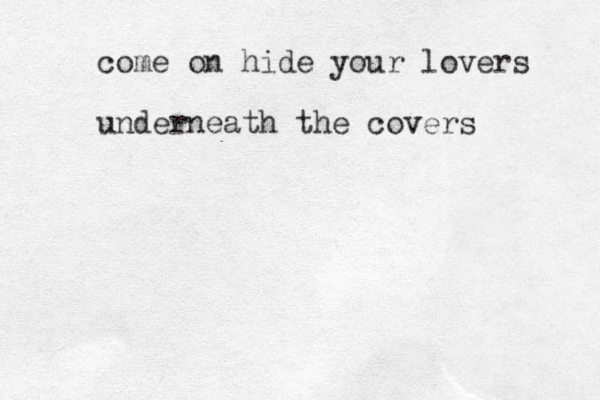 come on hide your lovers
underneath the covers